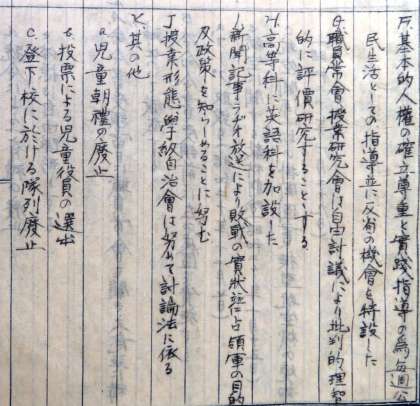 F 基本的人権の確立尊重と實践指導の為毎週公
民生活としての指導並に反省の機會を特設した
G 職員常會授業研究會は自由討議により批判的理智
的に評價研究することゝする
H 高等科に英語科を加設した
I 新聞記事ラヂオ放送により敗戦の實狀並に占領軍の目的
及政策を知らしめることに努む
J 授業形態學級自治會は努めて討論法に依る
K 其の他
a 児童朝禮の廢止
b 投票による児童役員の選出
c 登下校に於ける隊列廢止